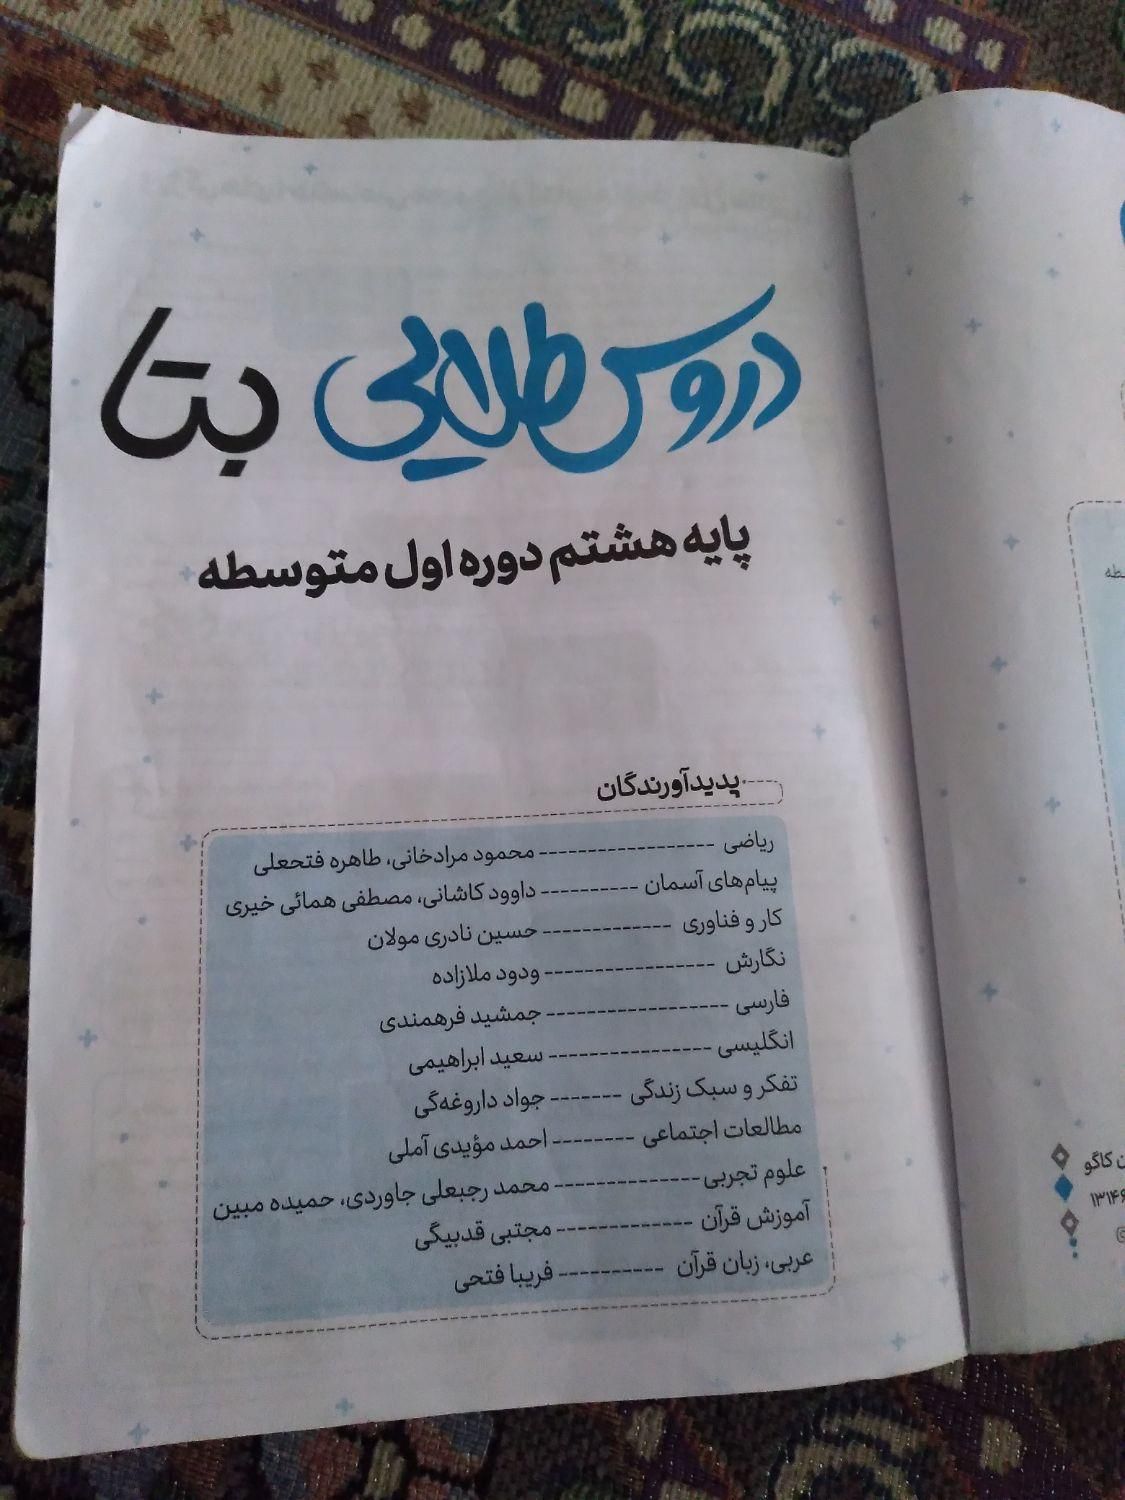 دروس طلایی بتا
پایه هشتم دوره اول متوسطه
پدیدآورندگان
ریاضی ------------------ محمود مرادخانی، طاهره فتحعلی
پیام‌های آسمان ---------- داوود کاشانی، مصطفی همائی خیری
کار و فناوری ------------- حسین نادری مولان
نگارش ----------------- ودود ملازاده
فارسی ------------------ جمشید فرهمندی
انگلیسی ---------------- سعید ابراهیمی
تفکر و سبک زندگی ------- جواد داروغه‌گی
مطالعات اجتماعی -------- احمد مؤیدی آملی
علوم تجربی -------------- محمد رجبعلی جاوردی، حمیده مبین
آموزش قرآن ------------- مجتبی قدبیگی
عربی، زبان قرآن ---------- فریبا فتحی
کاگو